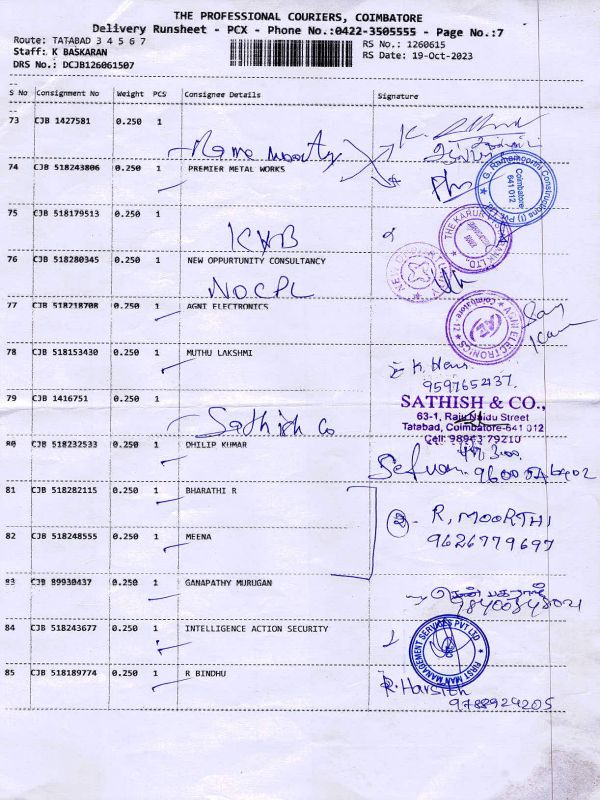 THE PROFESSIONAL COURIERS, COIMBATORE
Delivery Runsheet - PCX - Phone No.:0422-3505555 - Page No.:7
Route: TATABAD 3 4 5 6 7
RS No.: 1260615
Staff: K BASKARAN
RS Date: 19-Oct-2023
DRS No.: DCJB126061507
S No Consignment No Weight PCS Consignee Details Signature
73 CJB 1427581 0.250 1
74 CJB 518243806 0.250 1 PREMIER METAL WORKS
G. Ramamoorthy Constructions (I) Pvt Ltd
Coimbatore
641 012
75 CJB 518179513 0.250 1
KVB
THE KARUR BANK LTD.
76 CJB 518280345 0.250 1 NEW OPPURTUNITY CONSULTANCY
NOCPL
77 CJB 518218708 0.250 1 AGNI ELECTRONICS
AGNI ELECTRONICS
Coimbatore - 12
78 CJB 518153430 0.250 1 MUTHU LAKSHMI
9597652137
79 CJB 1416751 0.250 1
Sathish Co
SATHISH & CO.,
63-1, Raju Naidu Street
Tatabad, Coimbatore-641 012
Cell: 98943 79210
80 CJB 518232533 0.250 1 DHILIP KUMAR
81 CJB 518282115 0.250 1 BHARATHI R
R. MOORTHI
9626779697
82 CJB 518248555 0.250 1 MEENA
83 CJB 89930437 0.250 1 GANAPATHY MURUGAN
84 CJB 518243677 0.250 1 INTELLIGENCE ACTION SECURITY
FIRST MAN MANAGEMENT SERVICES PVT LTD
85 CJB 518189774 0.250 1 R BINDHU
R. Harsith
9788929205